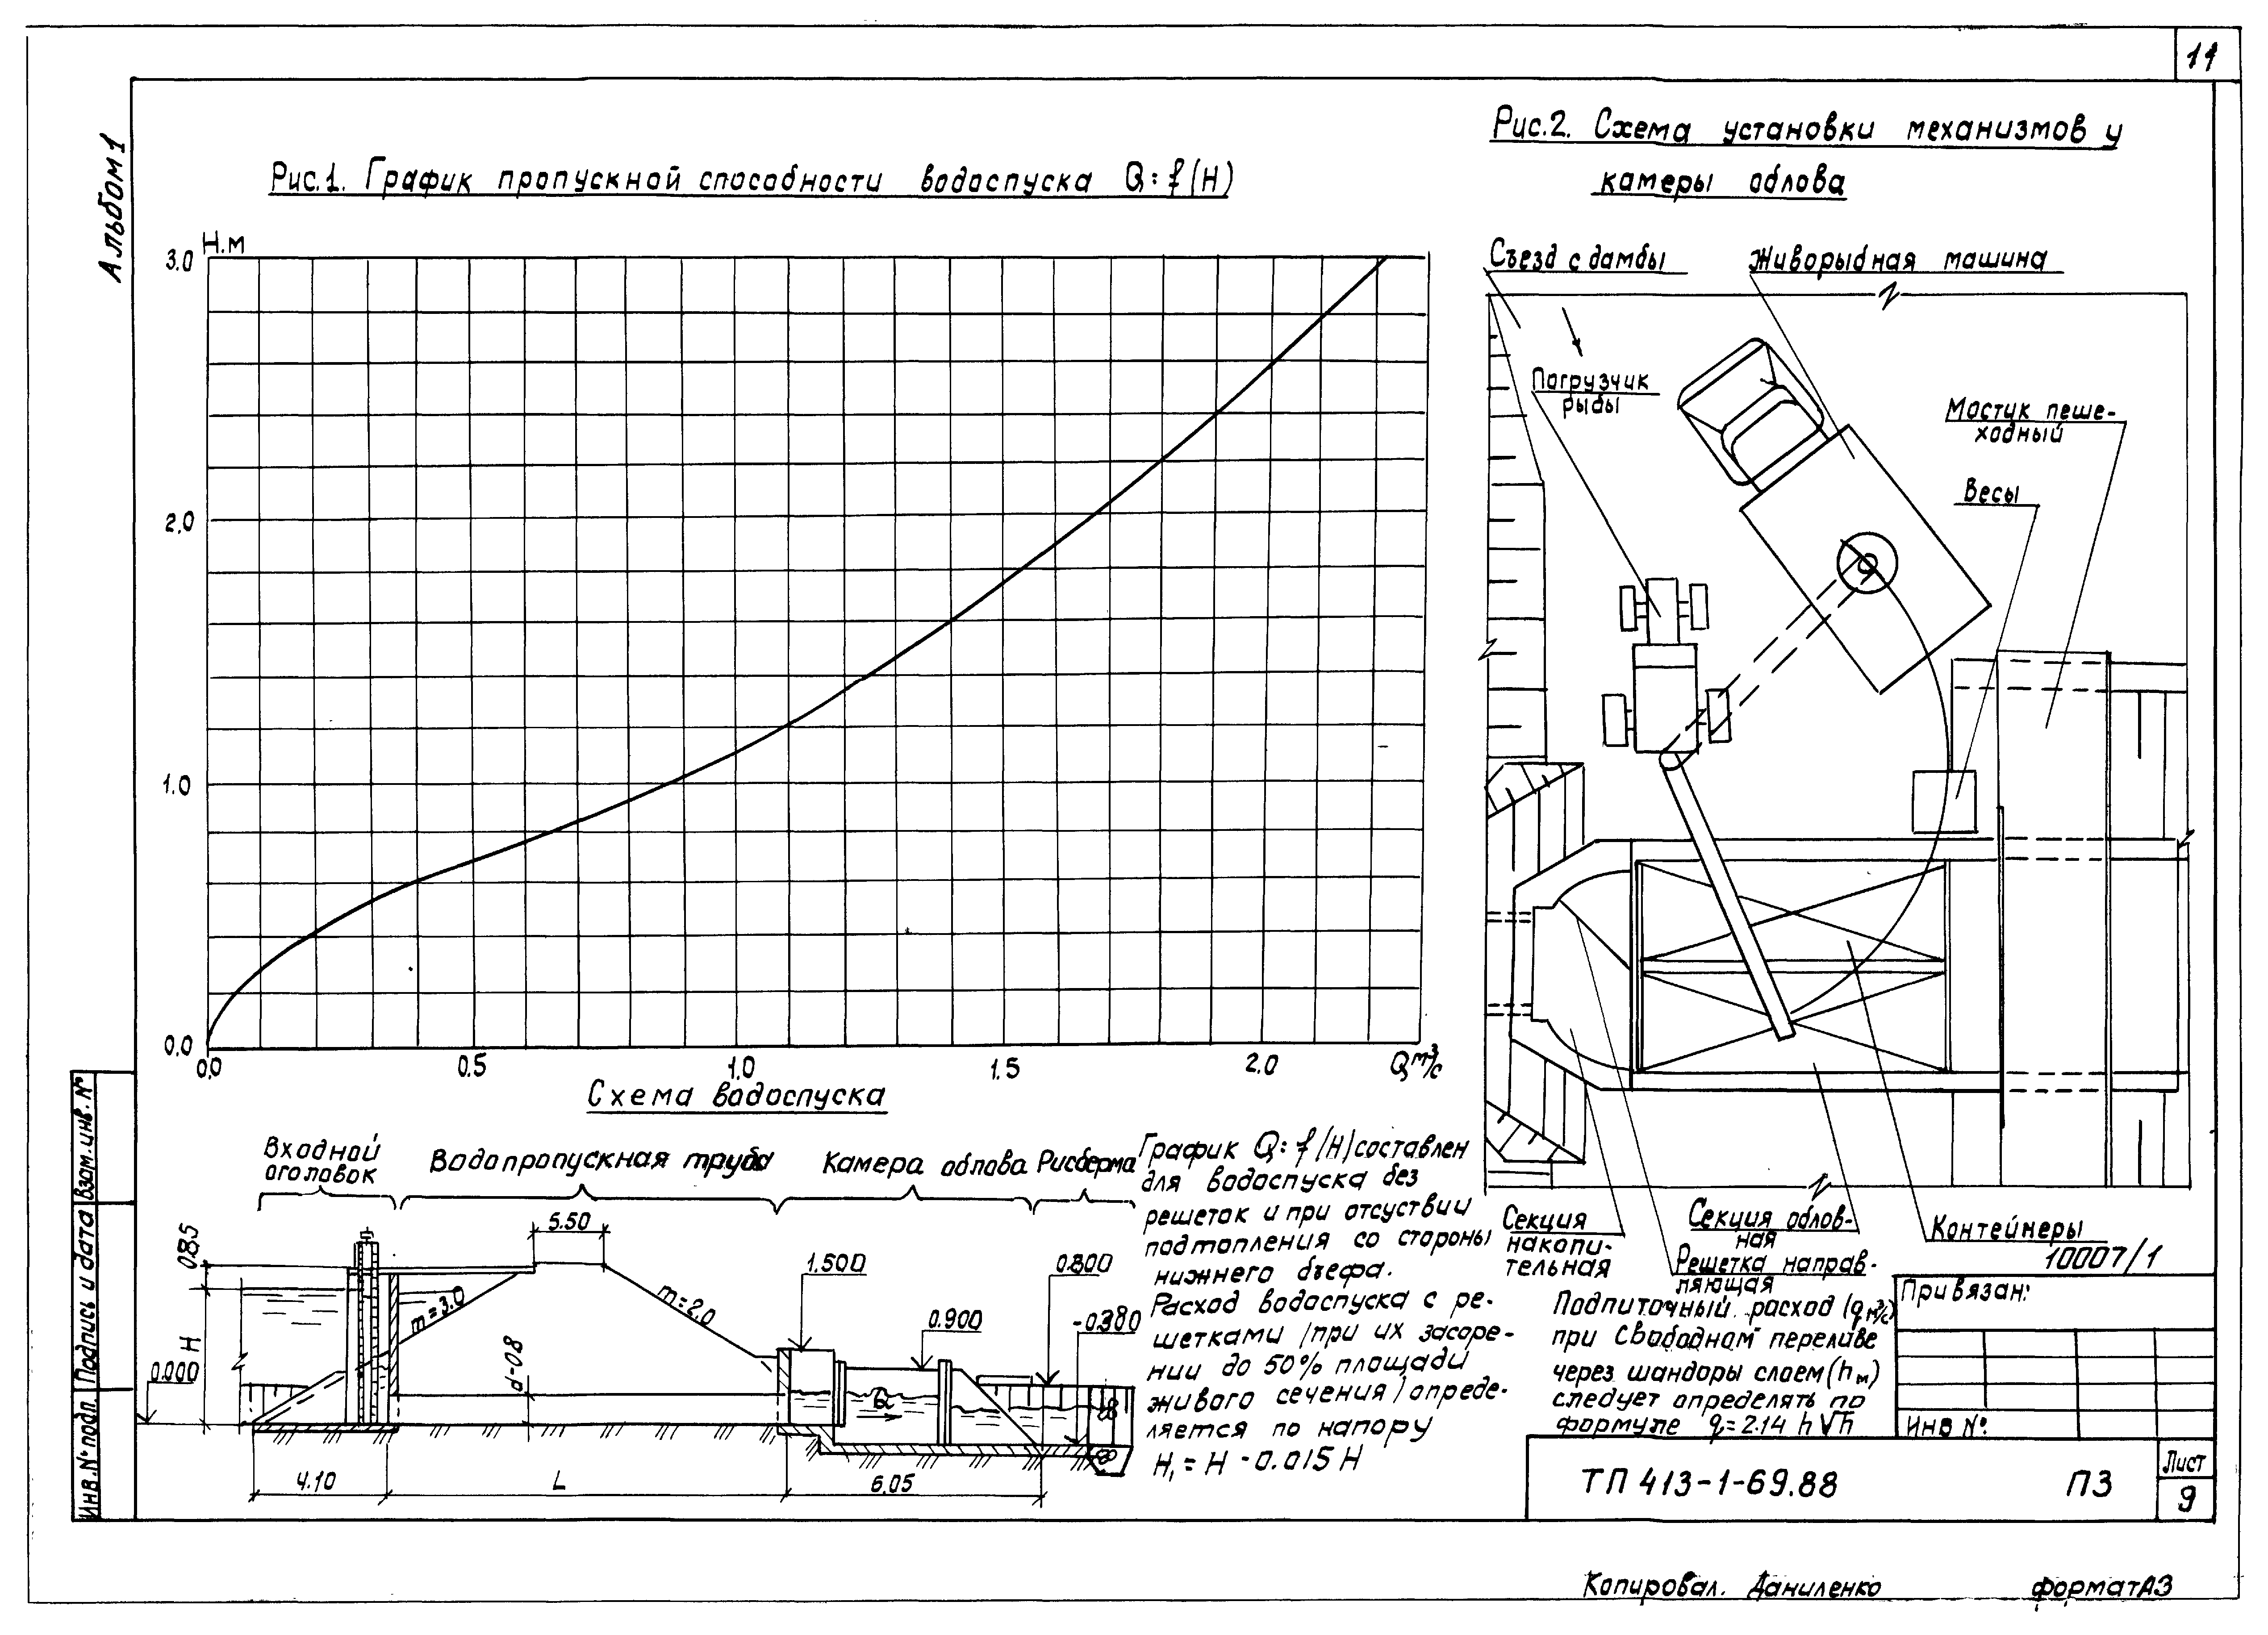 11
Альбом 1
Рис.1. График пропускной способности водоспуска Q=f(H)
Н.м
3.0
2.0
1.0
0.0
0.0
0.5
1.0
1.5
2.0
Q м³/с
Рис.2. Схема установки механизмов у
камеры облова
Съезд с дамбы
Живорыбная машина
Погрузчик
рыбы
Мостик пеше-
ходный
Весы
Секция
накопи-
тельная
Секция облов-
ная
Решетка направ-
ляющая
Контейнеры
Схема водоспуска
Входной
оголовок
Водопропускная труба
Камера облова
Рисберма
0.85
Н
0.000
m=3.0
5.50
m=2.0
d=0.8
1.500
0.900
Q
0.800
-0.380
4.10
L
6.05
График Q=f(H) составлен
для водоспуска без
решеток и при отсуствии
подтопления со стороны
нижнего бъефа.
Расход водоспуска с ре-
шетками /при их засоре-
нии до 50% площади
живого сечения/ опреде-
ляется по напору
H₁ = H - 0.015 H
Подпиточный расход (q м³/с)
при свободном переливе
через шандоры слоем (h м)
следует определять по
формуле q = 2.14 h√h
10007/1
Привязан:
ИНВ №
ТП 413-1-69.88
ПЗ
Лист
9
Инв.№ подл.
Подпись и дата
Взам.инв.№
Копировал. Даниленко
формат А3